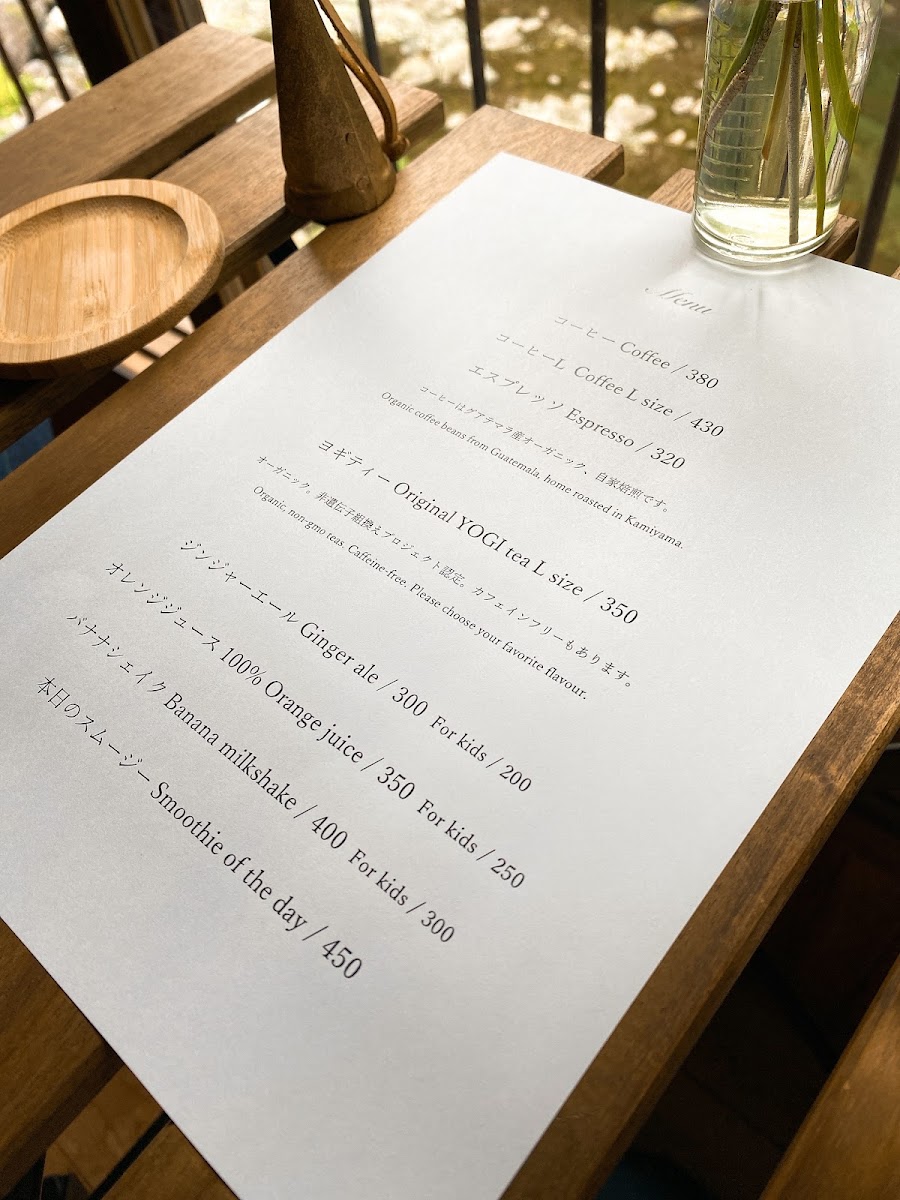 Menu
コーヒー Coffee / 380
コーヒーL Coffee L size / 430
エスプレッソ Espresso / 320
コーヒーはグアテマラ産オーガニック、自家焙煎です。
Organic coffee beans from Guatemala, home roasted in Kamiyama.
ヨギティー Original YOGI tea L size / 350
オーガニック。非遺伝子組換えプロジェクト認定。カフェインフリーもあります。
Organic, non-gmo teas. Caffeine-free. Please choose your favorite flavour.
ジンジャーエール Ginger ale / 300 For kids / 200
オレンジジュース 100% Orange juice / 350 For kids / 250
バナナシェイク Banana milkshake / 400 For kids / 300
本日のスムージー Smoothie of the day / 450